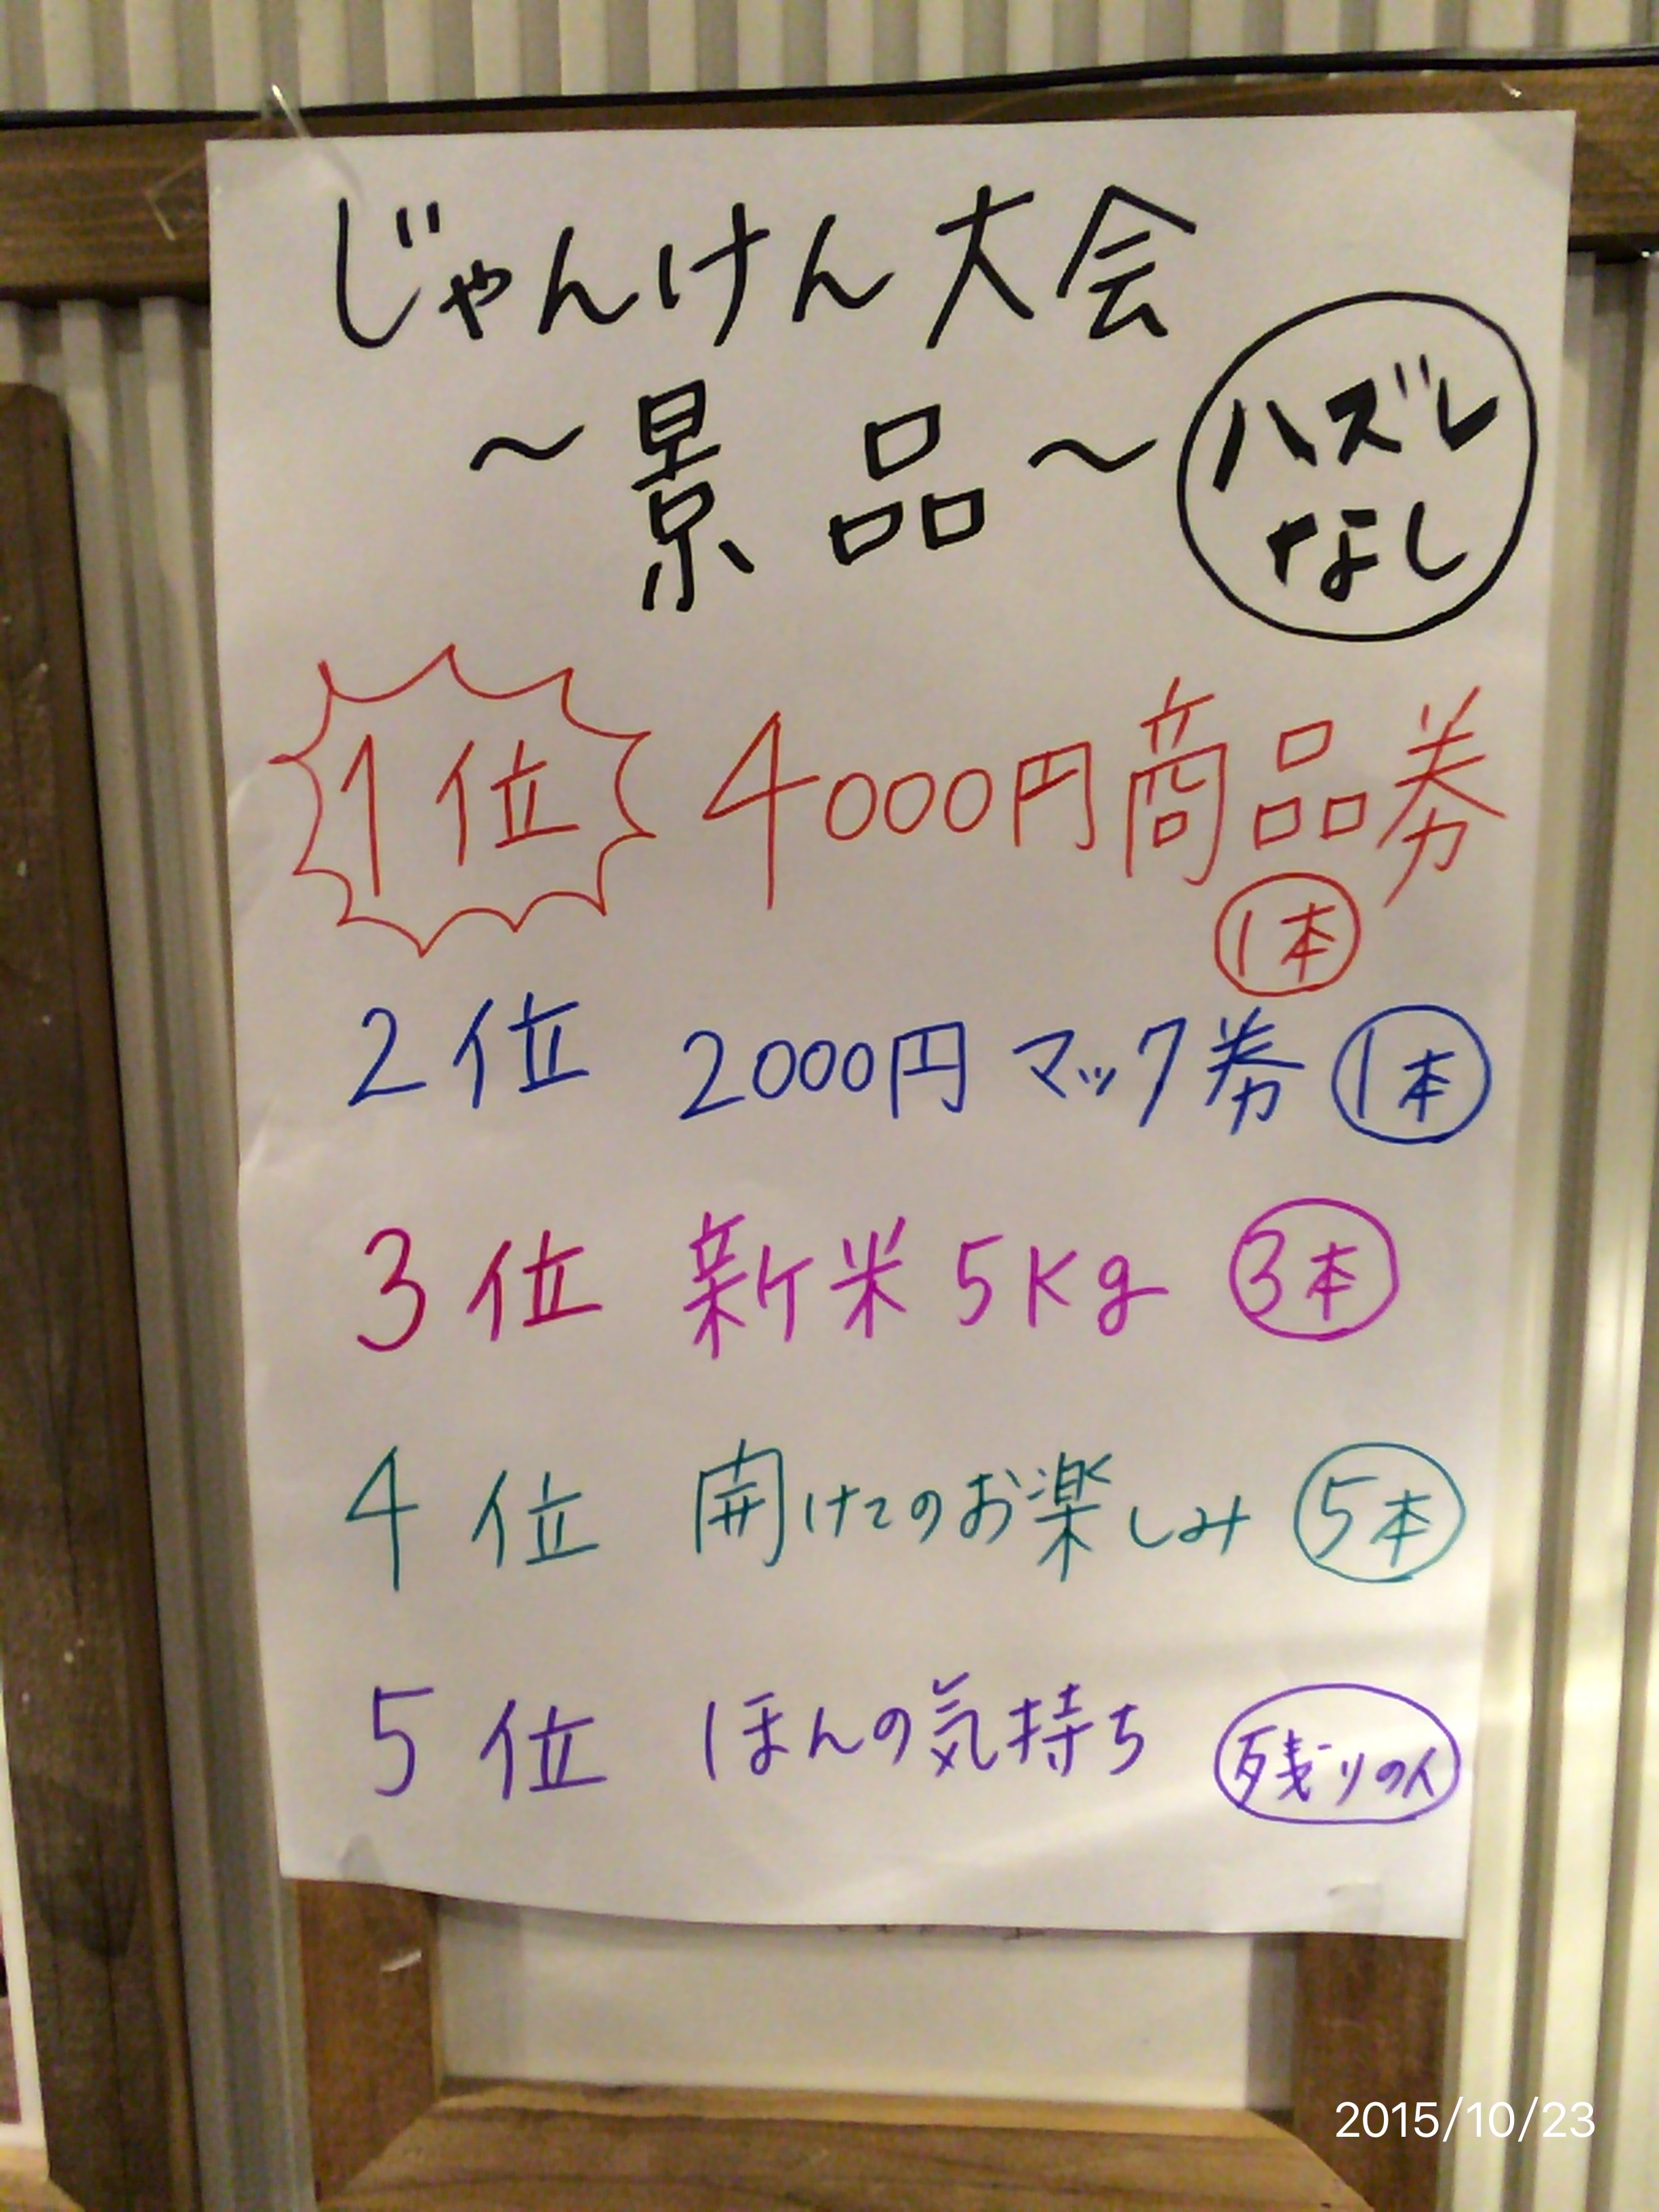 じゃんけん大会
～景品～
ハズレ
なし
1位 4000円商品券
1本
2位 2000円マック券 1本
3位 新米5Kg 3本
4位 開けてのお楽しみ 5本
5位 ほんの気持ち 残りの人
2015/10/23